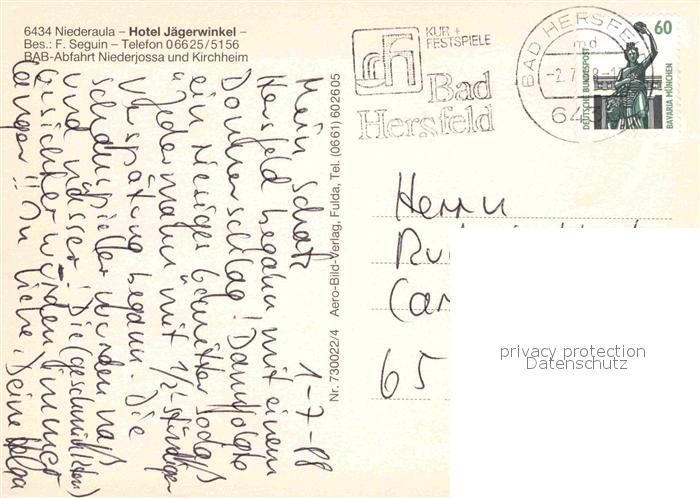 6434 Niederaula – Hotel Jägerwinkel –
Bes.: F. Seguin – Telefon 06625/5156
BAB-Abfahrt Niederjossa und Kirchheim
Mein Schatz 1-7-88
Hersfeld begann mit einem
Donnerschlag! Dann folgte
ein riesiges Gewitter, sodaß
"Jedermann" mit 1/2-stündiger
Verspätung begann. Die
Schauspieler wurden naß
und nässer! Die (geschminkten)
Gesichter wurden immer
länger!! In Liebe! Deine Helga
Nr. 730022/4 Aero-Bild-Verlag, Fulda, Tel. (0661) 602605
KUR +
FESTSPIELE
Bad
Hersfeld
BAD HERSFE
md
-2.7.
643
60
DEUTSCHE BUNDESPOST
BAVARIA MÜNCHEN
Herrn
Ru
Car
65
privacy protection
Datenschutz